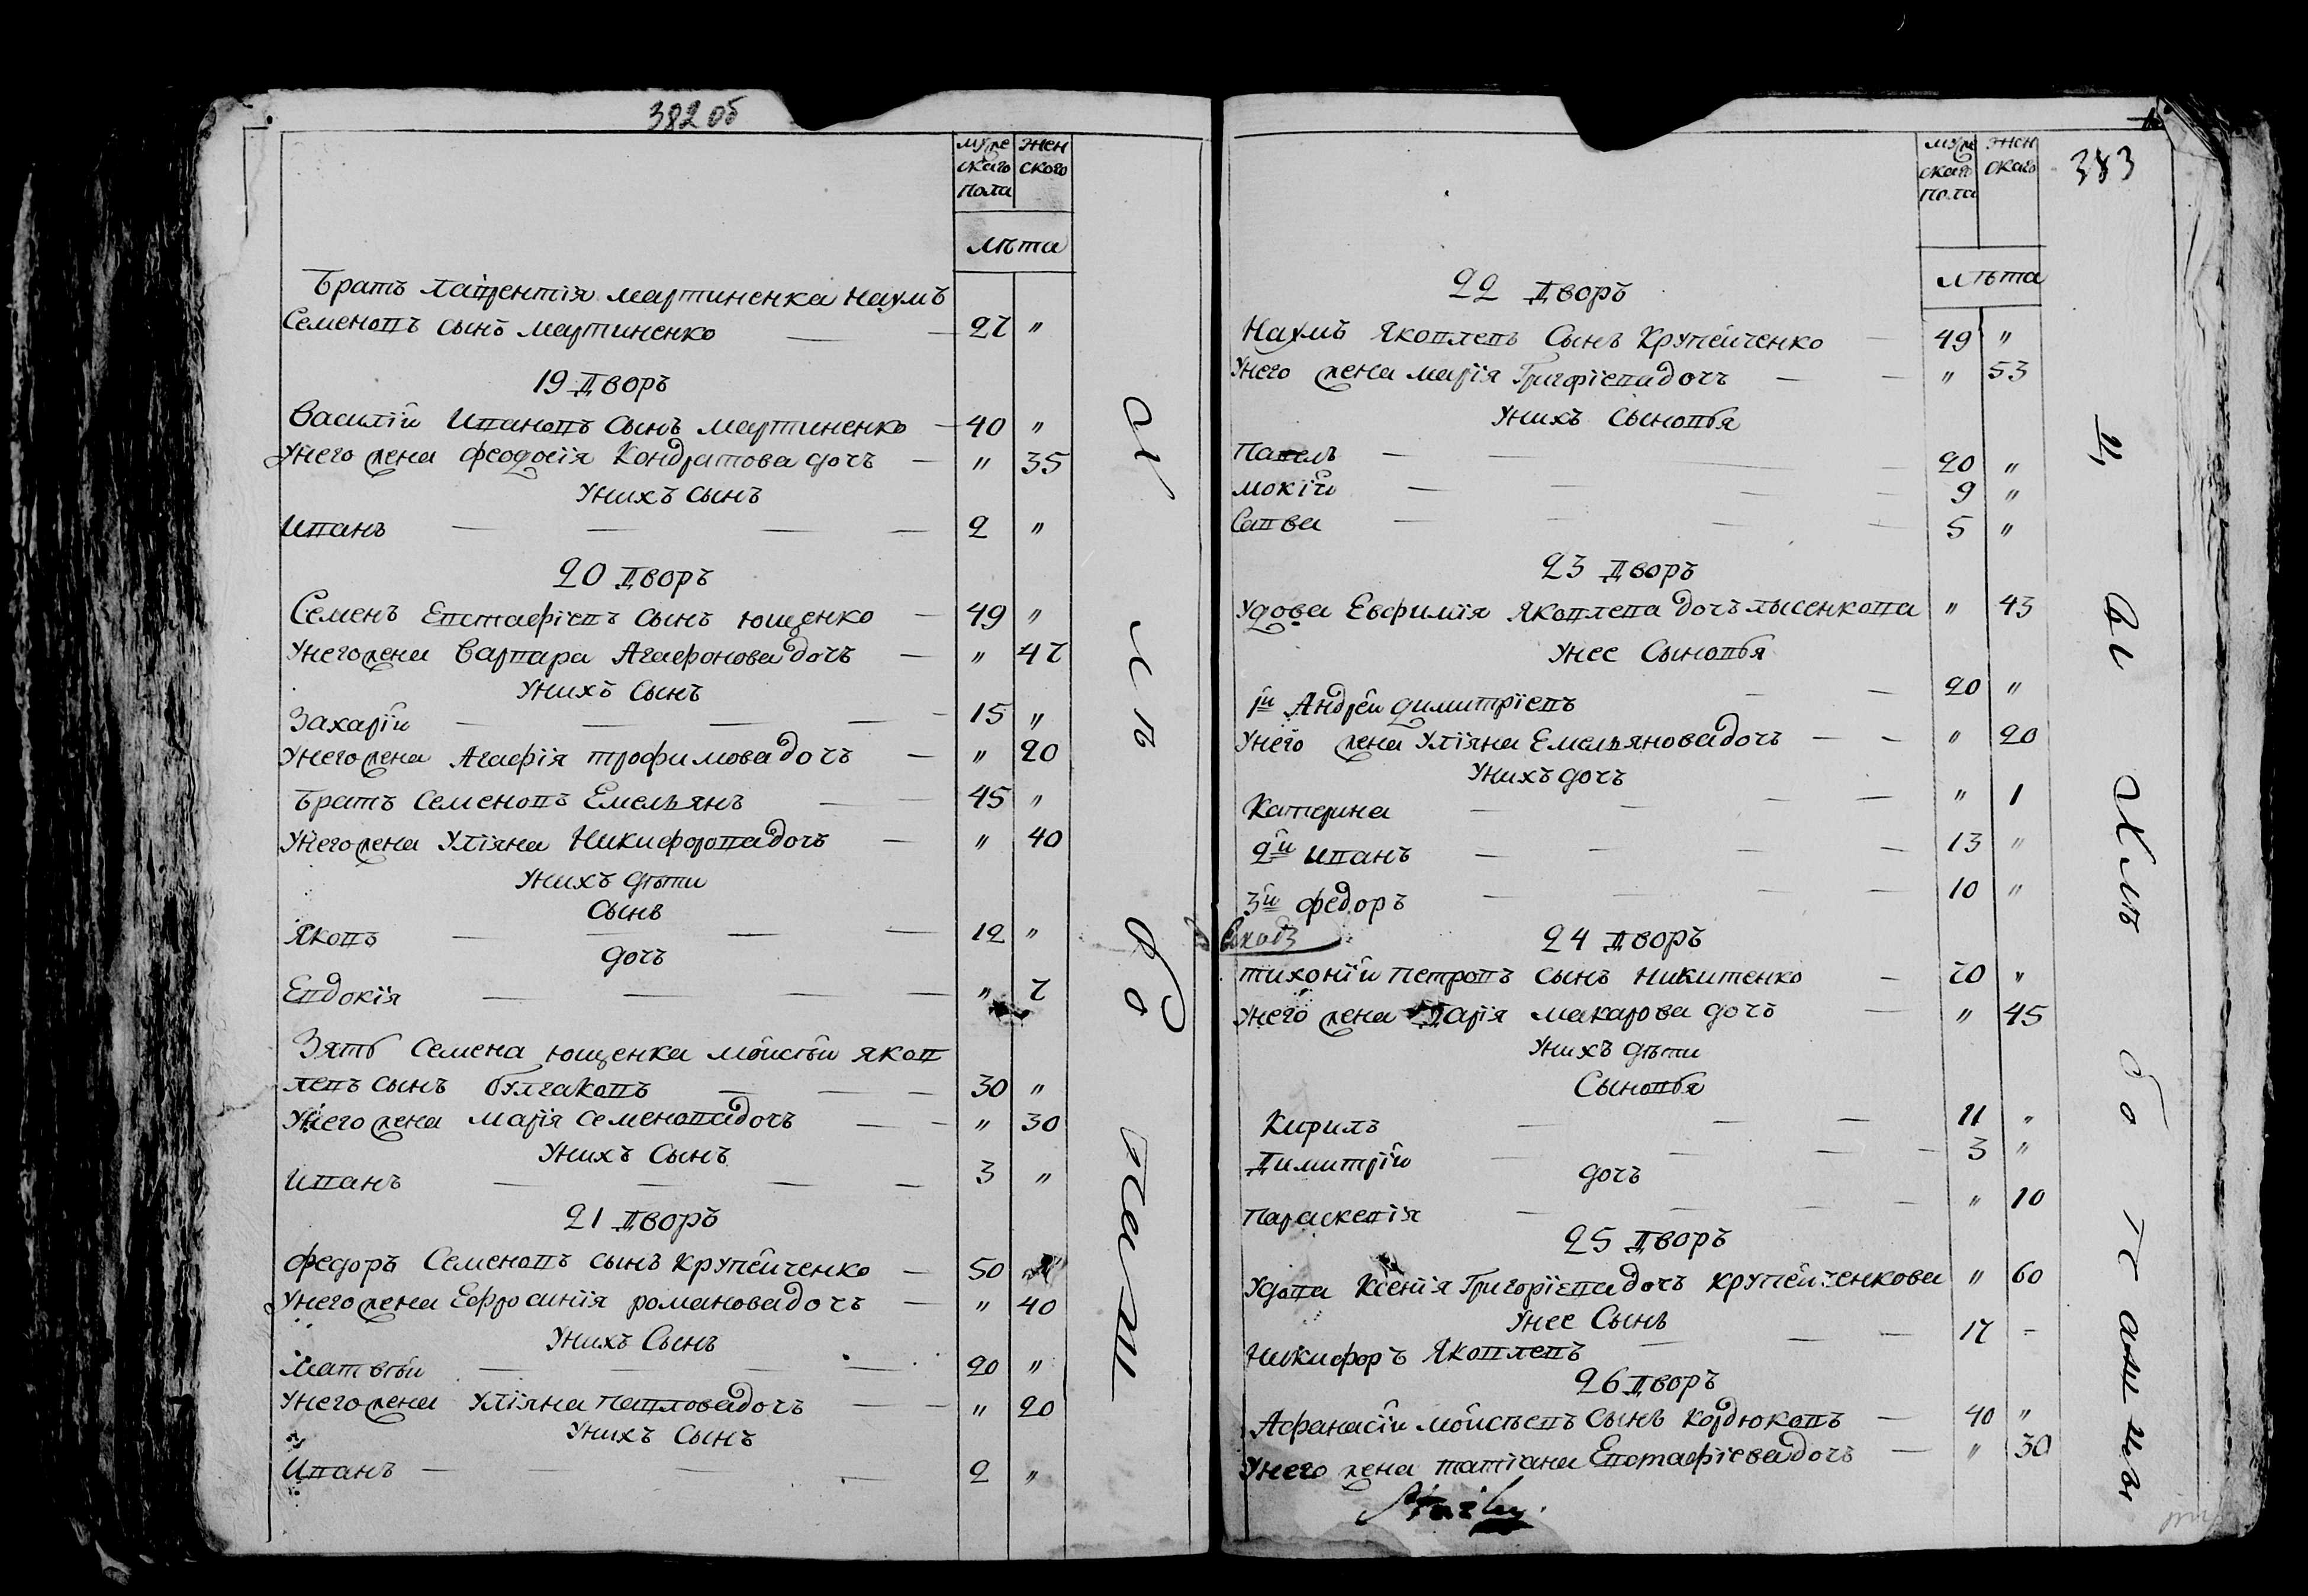 382 об
муже ского пола
жен ского
лѣта
Братъ Лаврентія Мартиненка Наумъ
Семеновъ сынъ Мартиненко 27 "
19 Дворъ
Василій Ивановъ сынъ Мартиненко 40 "
У него жена Феодосія Кондратова дочъ " 35
У нихъ сынъ
Иванъ 2 "
20 Дворъ
Семенъ Евстафіевъ сынъ Ющенко 49 "
У него жена Варвара Агафонова дочъ " 47
У нихъ сынъ
Захарій 15 "
У него жена Агафія Трофимова дочъ " 20
Братъ Семеновъ Емельянъ 45 "
У него жена Уліяна Никифорова дочъ " 40
У нихъ дѣти
Сынъ
Яковъ 12 "
дочъ
Евдокія " 7
Зять Семена Ющенка Мойсѣй Яков
левъ сынъ Булгаковъ 30 "
У него жена Марія Семенова дочъ " 30
У нихъ Сынъ
Иванъ 3 "
21 Дворъ
Федоръ Семеновъ сынъ Крупейченко 50 "
У него жена Ефросинія Романова дочъ " 40
У нихъ Сынъ
Матвѣй 20 "
У него жена Уліяна Павлова дочъ " 20
У нихъ Сынъ
Иванъ 2 "
383
муже ского пола
жен ского
лѣта
22 Дворъ
Наумъ Яковлевъ Сынъ Крупейченко 49 "
У него жена Марія Григоріева дочъ " 53
У нихъ Сыновья
Павелъ 20 "
Мокій 9 "
Савва 5 "
23 Дворъ
Удова Евфимія Яковлева дочъ Лысенкова " 43
У нее Сыновья
1й Андрей Димитріевъ 20 "
У него жена Уліяна Емельянова дочъ " 20
У нихъ дочъ
Катерина " 1
2й Иванъ 13 "
3й Федоръ 10 "
24 Дворъ
Тихоній Петровъ сынъ Никитенко 70 "
У него жена Дарія Макарова дочъ " 45
У нихъ дѣти
Сыновья
Кирилъ 11 "
Димитрій 3 "
дочъ
Параскевія " 10
25 Дворъ
Удова Ксенія Григоріева дочъ Крупейченкова " 60
У нее Сынъ
Никифоръ Яковлевъ 17 -
26 Дворъ
Афанасій Мойсѣевъ Сынъ Кордюковъ 40 "
У него жена Татіана Евстафіева дочъ " 30